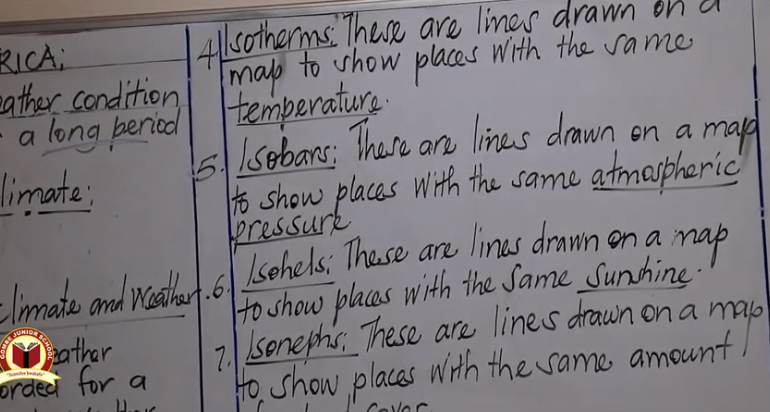 RICA;
ather condition
a long period
limate:
climate and Weather.
eather
orded for a
4. Isotherms: These are lines drawn on a
map to show places with the same
temperature.
5. Isobars: These are lines drawn on a map
to show places with the same atmospheric
pressure
6. Isohels: These are lines drawn on a map
to show places with the same sunshine.
7. Isonephs: These are lines drawn on a map
to show places with the same amount
cover
GOMBE JUNIOR SCHOOL